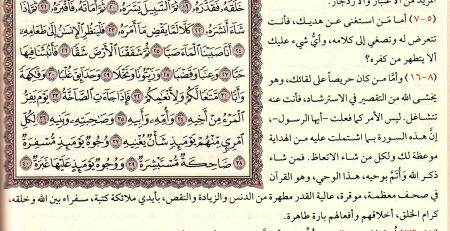 خَلَقَهُۥ فَقَدَّرَهُۥ ۝١٩ ثُمَّ ٱلسَّبِيلَ يَسَّرَهُۥ ۝٢٠ ثُمَّ أَمَاتَهُۥ فَأَقۡبَرَهُۥ ۝٢١ ثُمَّ إِذَا
شَآءَ أَنشَرَهُۥ ۝٢٢ كَلَّا لَمَّا يَقۡضِ مَآ أَمَرَهُۥ ۝٢٣ فَلۡيَنظُرِ ٱلۡإِنسَٰنُ إِلَىٰ طَعَامِهِۦٓ
۝٢٤ أَنَّا صَبَبۡنَا ٱلۡمَآءَ صَبّٗا ۝٢٥ ثُمَّ شَقَقۡنَا ٱلۡأَرۡضَ شَقّٗا ۝٢٦ فَأَنۢبَتۡنَا فِيهَا
حَبّٗا ۝٢٧ وَعِنَبٗا وَقَضۡبٗا ۝٢٨ وَزَيۡتُونٗا وَنَخۡلٗا ۝٢٩ وَحَدَآئِقَ غُلۡبٗا ۝٣٠ وَفَٰكِهَةٗ
وَأَبّٗا ۝٣١ مَّتَٰعٗا لَّكُمۡ وَلِأَنۡعَٰمِكُمۡ ۝٣٢ فَإِذَا جَآءَتِ ٱلصَّآخَّةُ ۝٣٣ يَوۡمَ يَفِرُّ
ٱلۡمَرۡءُ مِنۡ أَخِيهِ ۝٣٤ وَأُمِّهِۦ وَأَبِيهِ ۝٣٥ وَصَٰحِبَتِهِۦ وَبَنِيهِ ۝٣٦ لِكُلِّ
ٱمۡرِيٕٖ مِّنۡهُمۡ يَوۡمَئِذٖ شَأۡنٞ يُغۡنِيهِ ۝٣٧ وُجُوهٞ يَوۡمَئِذٖ مُّسۡفِرَةٞ
۝٣٨ ضَاحِكَةٞ مُّسۡتَبۡشِرَةٞ ۝٣٩ وَوُجُوهٞ يَوۡمَئِذٍ عَلَيۡهَا غَبَرَةٞ ۝٤٠
(٥-٧) أما مَن استغنى عن هديك، فأنت
تتعرض له وتصغي إلى كلامه، وأيُّ شيء عليك
ألا يتطهر من كفره؟
(٨-١٦) وأمَّا من كان حريصاً على لقائك، وهو
يخشى الله من التقصير في الاسترشاد، فأنت عنه
تتشاغل. ليس الأمر كما فعلت -أيها الرسول-،
إنَّ هذه السورة بما اشتملت عليه من الهداية
موعظة لك ولكل من شاء الاتعاظ. فمن شاء
ذكر الله وَأْتَمَّ بوحيه، هذا الوحي، وهو القرآن
في صحف معظمة، موقرة، عالية القدر مطهرة من الدنس والزيادة والنقص، بأيدي ملائكة كتبة، سفراء بين الله وخلقه،
كرام الخلق، أخلاقهم وأفعالهم بارة طاهرة.